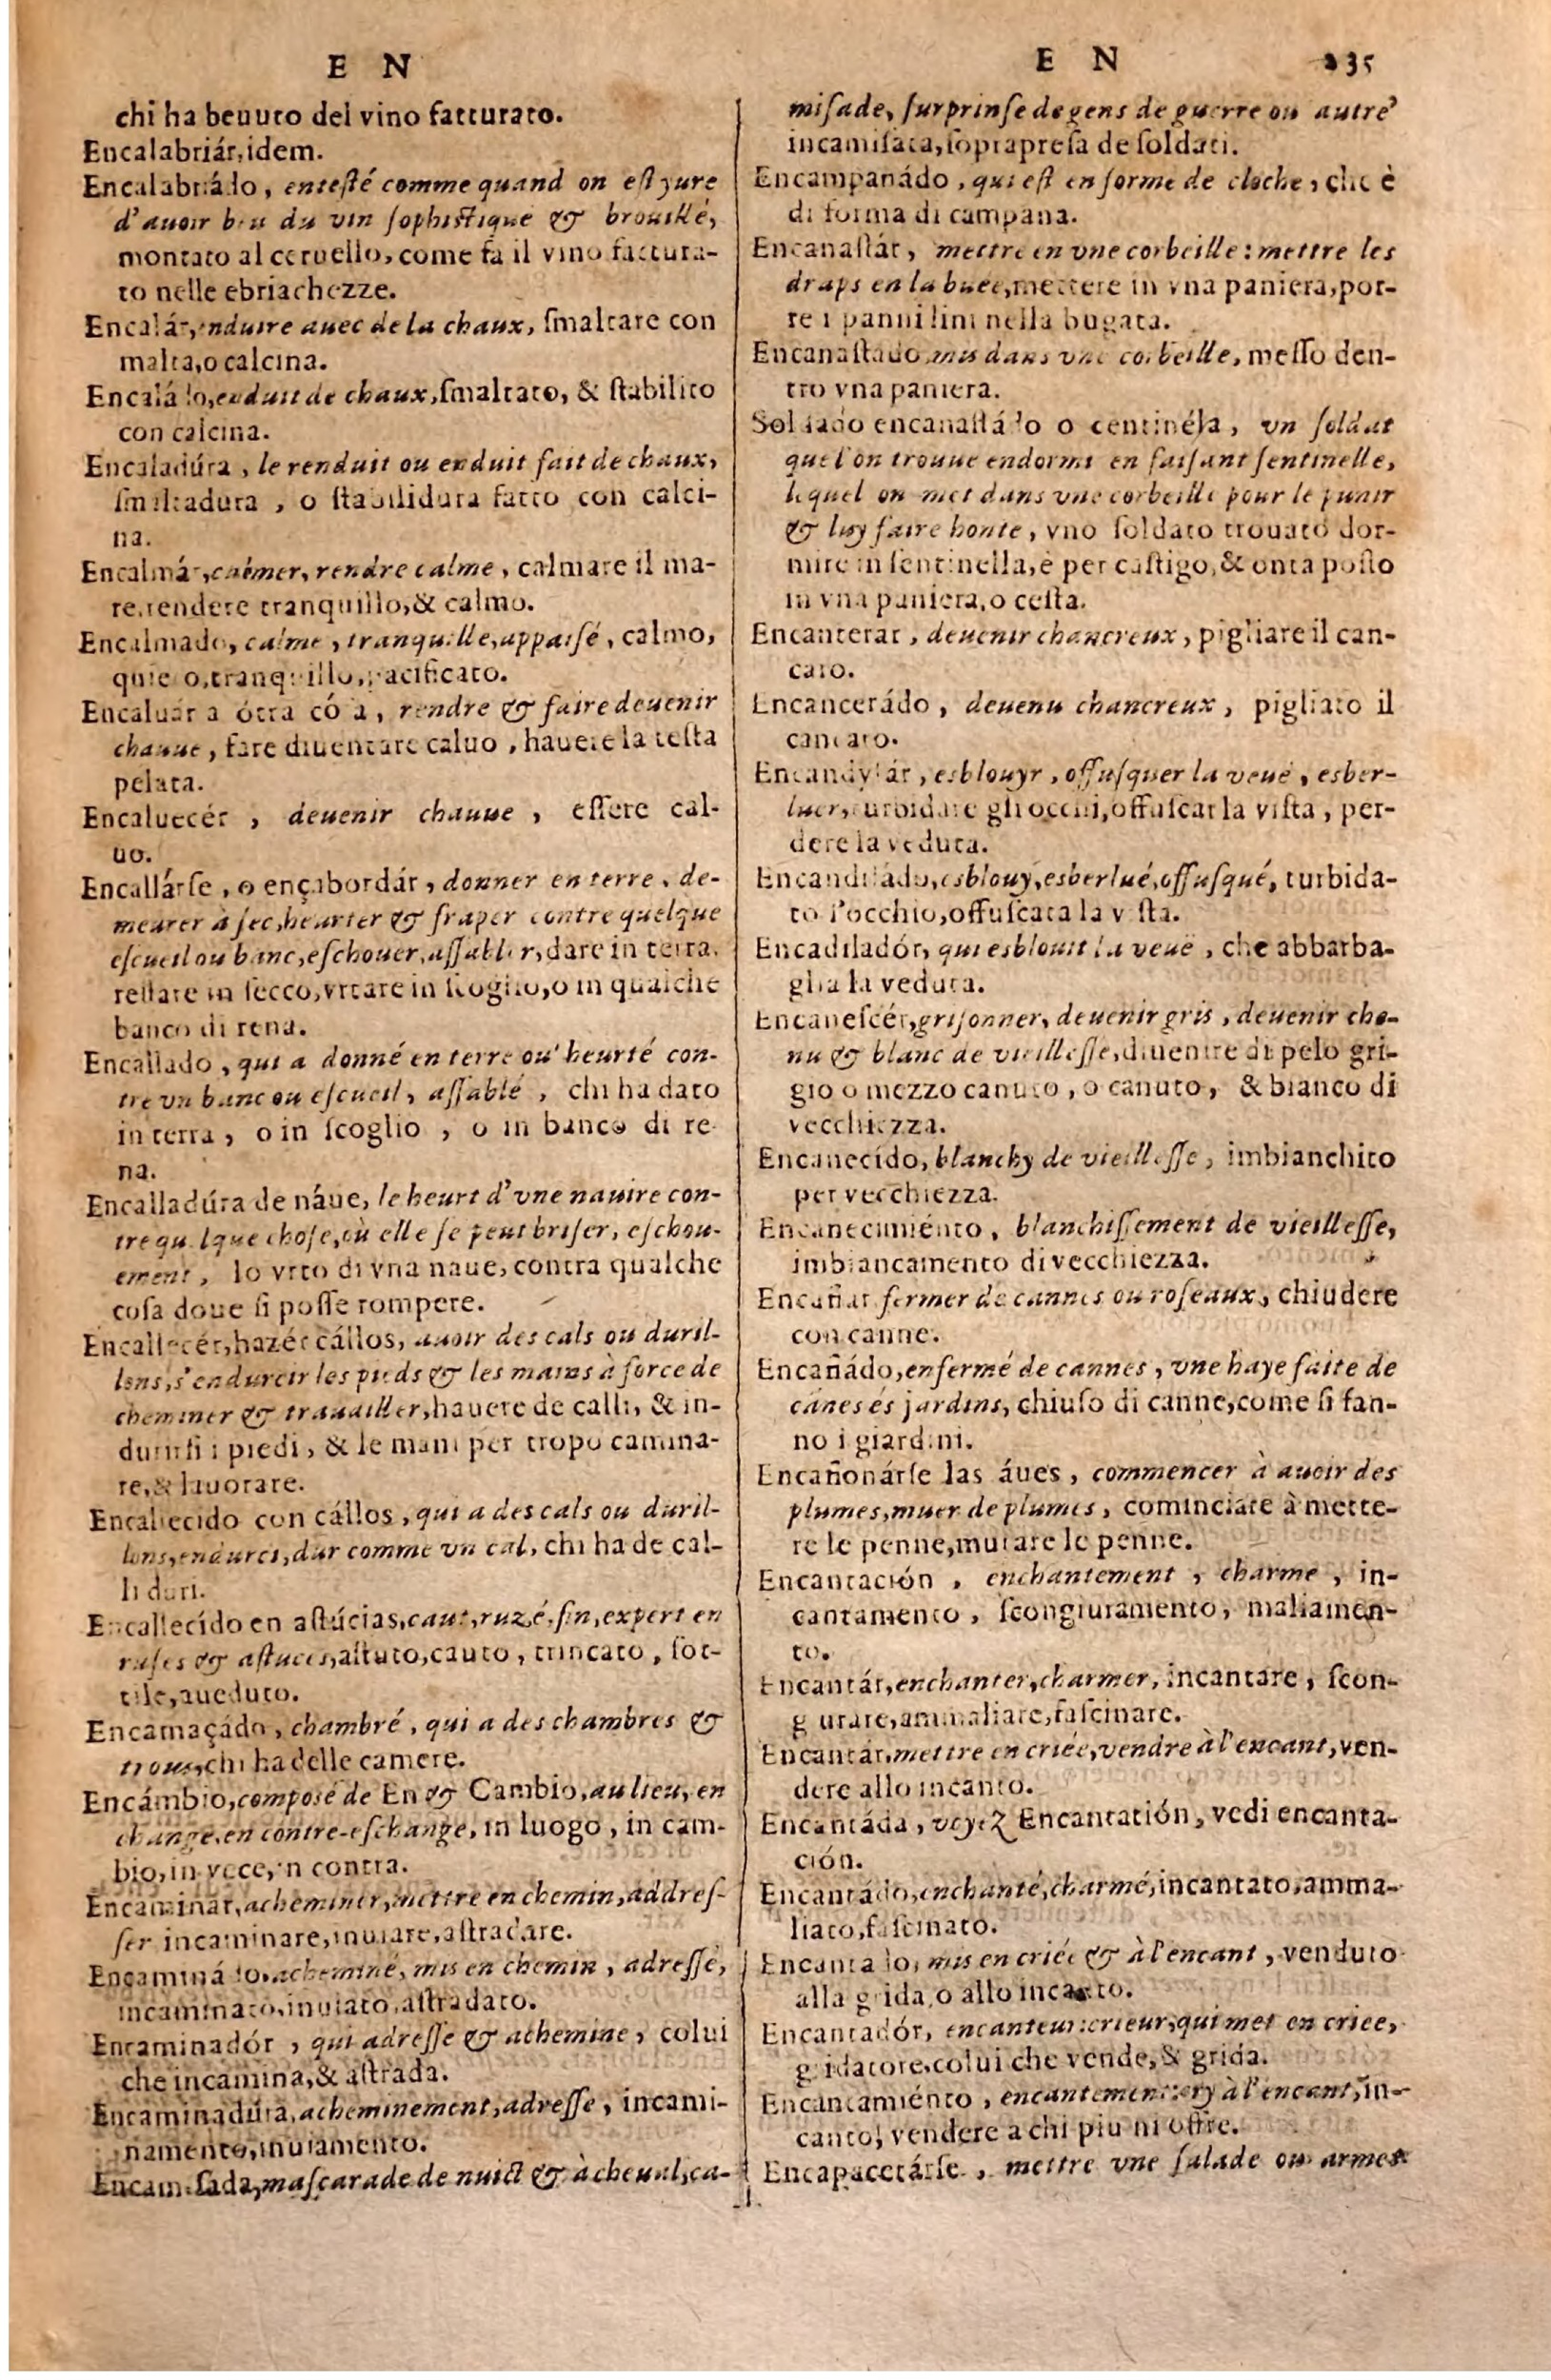 E N
chi ha beuuto del vino fatturato.
Encalabriár, idem.
Encalabriádo, entesté comme quand on est yure
d'auoir beu du vin sophistique & brouillé,
montato al ceruello, come fa il vino fattura-
to nelle ebriachezze.
Encalár, enduire auec de la chaux, ſmaltare con
malta, o calcina.
Encaládo, enduit de chaux, ſmaltato, & ſtabilito
con calcina.
Encaladúra, le renduit ou enduit fait de chaux,
ſmaltadura, o ſtabilidura fatto con calci-
na.
Encalmár, calmer, rendre calme, calmare il ma-
re, rendere tranquillo, & calmo.
Encalmado, calme, tranquille, appaiſé, calmo,
quieto, tranquillo, pacificato.
Encaluar a ótra cóſa, rendre & faire deuenir
chauue, fare diuentare caluo, hauere la teſta
pelata.
Encaluecér, deuenir chauue, eſſere cal-
uo.
Encallárſe, o ençabordár, donner en terre, de-
meurer à ſec, heurter & fraper contre quelque
eſcueil ou banc, eſchouer, aſſabler, dare in terra,
reſtare in ſecco, vrtare in ſcoglio, o in qualche
banco di rena.
Encallado, qui a donné en terre ou heurté con-
tre vn banc ou eſcueil, aſſablé, chi ha dato
in terra, o in ſcoglio, o in banco di re-
na.
Encalladúra de náue, le heurt d'vne nauire con-
tre quelque choſe, où elle ſe peut briſer, eſchou-
ement, lo vrto di vna naue, contra qualche
coſa doue ſi poſſe rompere.
Encallecér, hazér cállos, auoir des cals ou duril-
lons, s'endurcir les pieds & les mains à force de
cheminer & trauailler, hauere de calli, & in-
durirſi i piedi, & le mani per tropo camina-
re, & lauorare.
Encallecido con cállos, qui a des cals ou duril-
lons, endurci, dur comme vn cal, chi ha de cal-
li duri.
Encallecído en aſtúcias, caut, ruzé, fin, expert en
ruſes & aſtuces, aſtuto, cauto, trincato, ſot-
tile, aueduto.
Encamaçádo, chambré, qui a des chambres &
trous, chi ha delle camere.
Encámbio, composé de En & Cambio, au lieu, en
change, en contre-eſchange, in luogo, in cam-
bio, in vece, in contra.
Encaminár, acheminer, mettre en chemin, addreſ-
ſer incaminare, inuiare, aſtradare.
Encaminádo, acheminé, mis en chemin, adreſſé,
incaminato, inuiato, aſtradato.
Encaminadór, qui adreſſe & achemine, colui
che incamina, & aſtrada.
Encaminadúra, acheminement, adreſſe, incami-
namento, inuiamento.
Encamiſada, maſcarade de nuict & à cheual, ca-
E N 235
miſade, ſurprinſe de gens de guerre ou autre
incamiſata, ſoprapreſa de ſoldati.
Encampanádo, qui eſt en forme de cloche, che è
di forma di campana.
Encanaſtár, mettre en vne corbeille: mettre les
draps en la buée, mettere in vna paniera, por-
re i panni lini nella bugata.
Encanaſtado mis dans vne corbeille, meſſo den-
tro vna paniera.
Soldado encanaſtádo o centinéla, vn ſoldat
que l'on trouue endormi en faiſant ſentinelle,
lequel on met dans vne corbeille pour le punir
& luy faire honte, vno ſoldato trouato dor-
mire in ſentinella, è per caſtigo, & onta poſto
in vna paniera, o ceſta.
Encancerar, deuenir chancreux, pigliare il can-
caro.
Encancerádo, deuenu chancreux, pigliato il
cancaro.
Encandylár, esblouyr, offuſquer la veuë, esber-
luer, turbidare gli occhi, offuſcar la viſta, per-
dere la veduta.
Encandiládo, esblouy, esberlué, offuſqué, turbida-
to l'occhio, offuſcata la viſta.
Encadiladór, qui esblouit la veuë, che abbarba-
glia la veduta.
Encaneſcér, griſonner, deuenir gris, deuenir che-
nu & blanc de vieilleſſe, diuenire di pelo gri-
gio o mezzo canuto, o canuto, & bianco di
vecchiezza.
Encanecído, blanchy de vieilleſſe, imbianchito
per vecchiezza.
Encanecimiénto, blanchiſſement de vieilleſſe,
imbiancamento di vecchiezza.
Encañar fermer de cannes ou roſeaux, chiudere
con canne.
Encañádo, enfermé de cannes, vne haye faite de
canes és jardins, chiuſo di canne, come ſi fan-
no i giardini.
Encañonárſe las áues, commencer à auoir des
plumes, muer de plumes, cominciare à mette-
re le penne, mutare le penne.
Encantación, enchantement, charme, in-
cantamento, ſcongiuramento, maliamen-
to.
Encantár, enchanter, charmer, incantare, ſcon-
giurare, ammaliare, faſcinare.
Encantár, mettre en criée, vendre à l'encant, ven-
dere allo incanto.
Encantáda, voyez Encantatión, vedi encanta-
ción.
Encantádo, enchanté, charmé, incantato, amma-
liato, faſcinato.
Encantado, mis en criée & à l'encant, venduto
alla grida, o allo incanto.
Encantadór, encanteur: crieur, qui met en criee,
gridatore, colui che vende, & grida.
Encantamiénto, encantement: cry à l'encant, in-
canto, vendere a chi piu ni offre.
Encapacetárſe, mettre vne ſalade ou armet